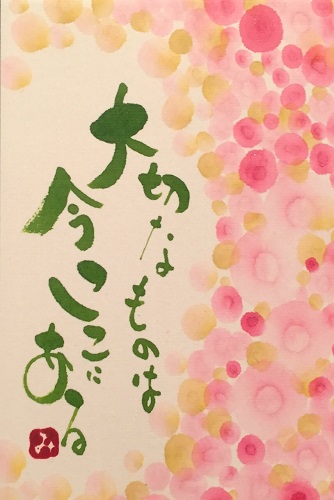 大切なものは
今ここにある
み